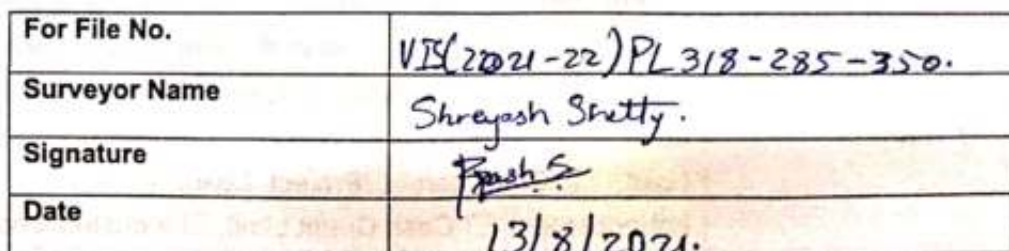 For File No. VIS(2021-22)PL318-285-350.
Surveyor Name Shreyash Shetty.
Signature
Date 13/8/2021.